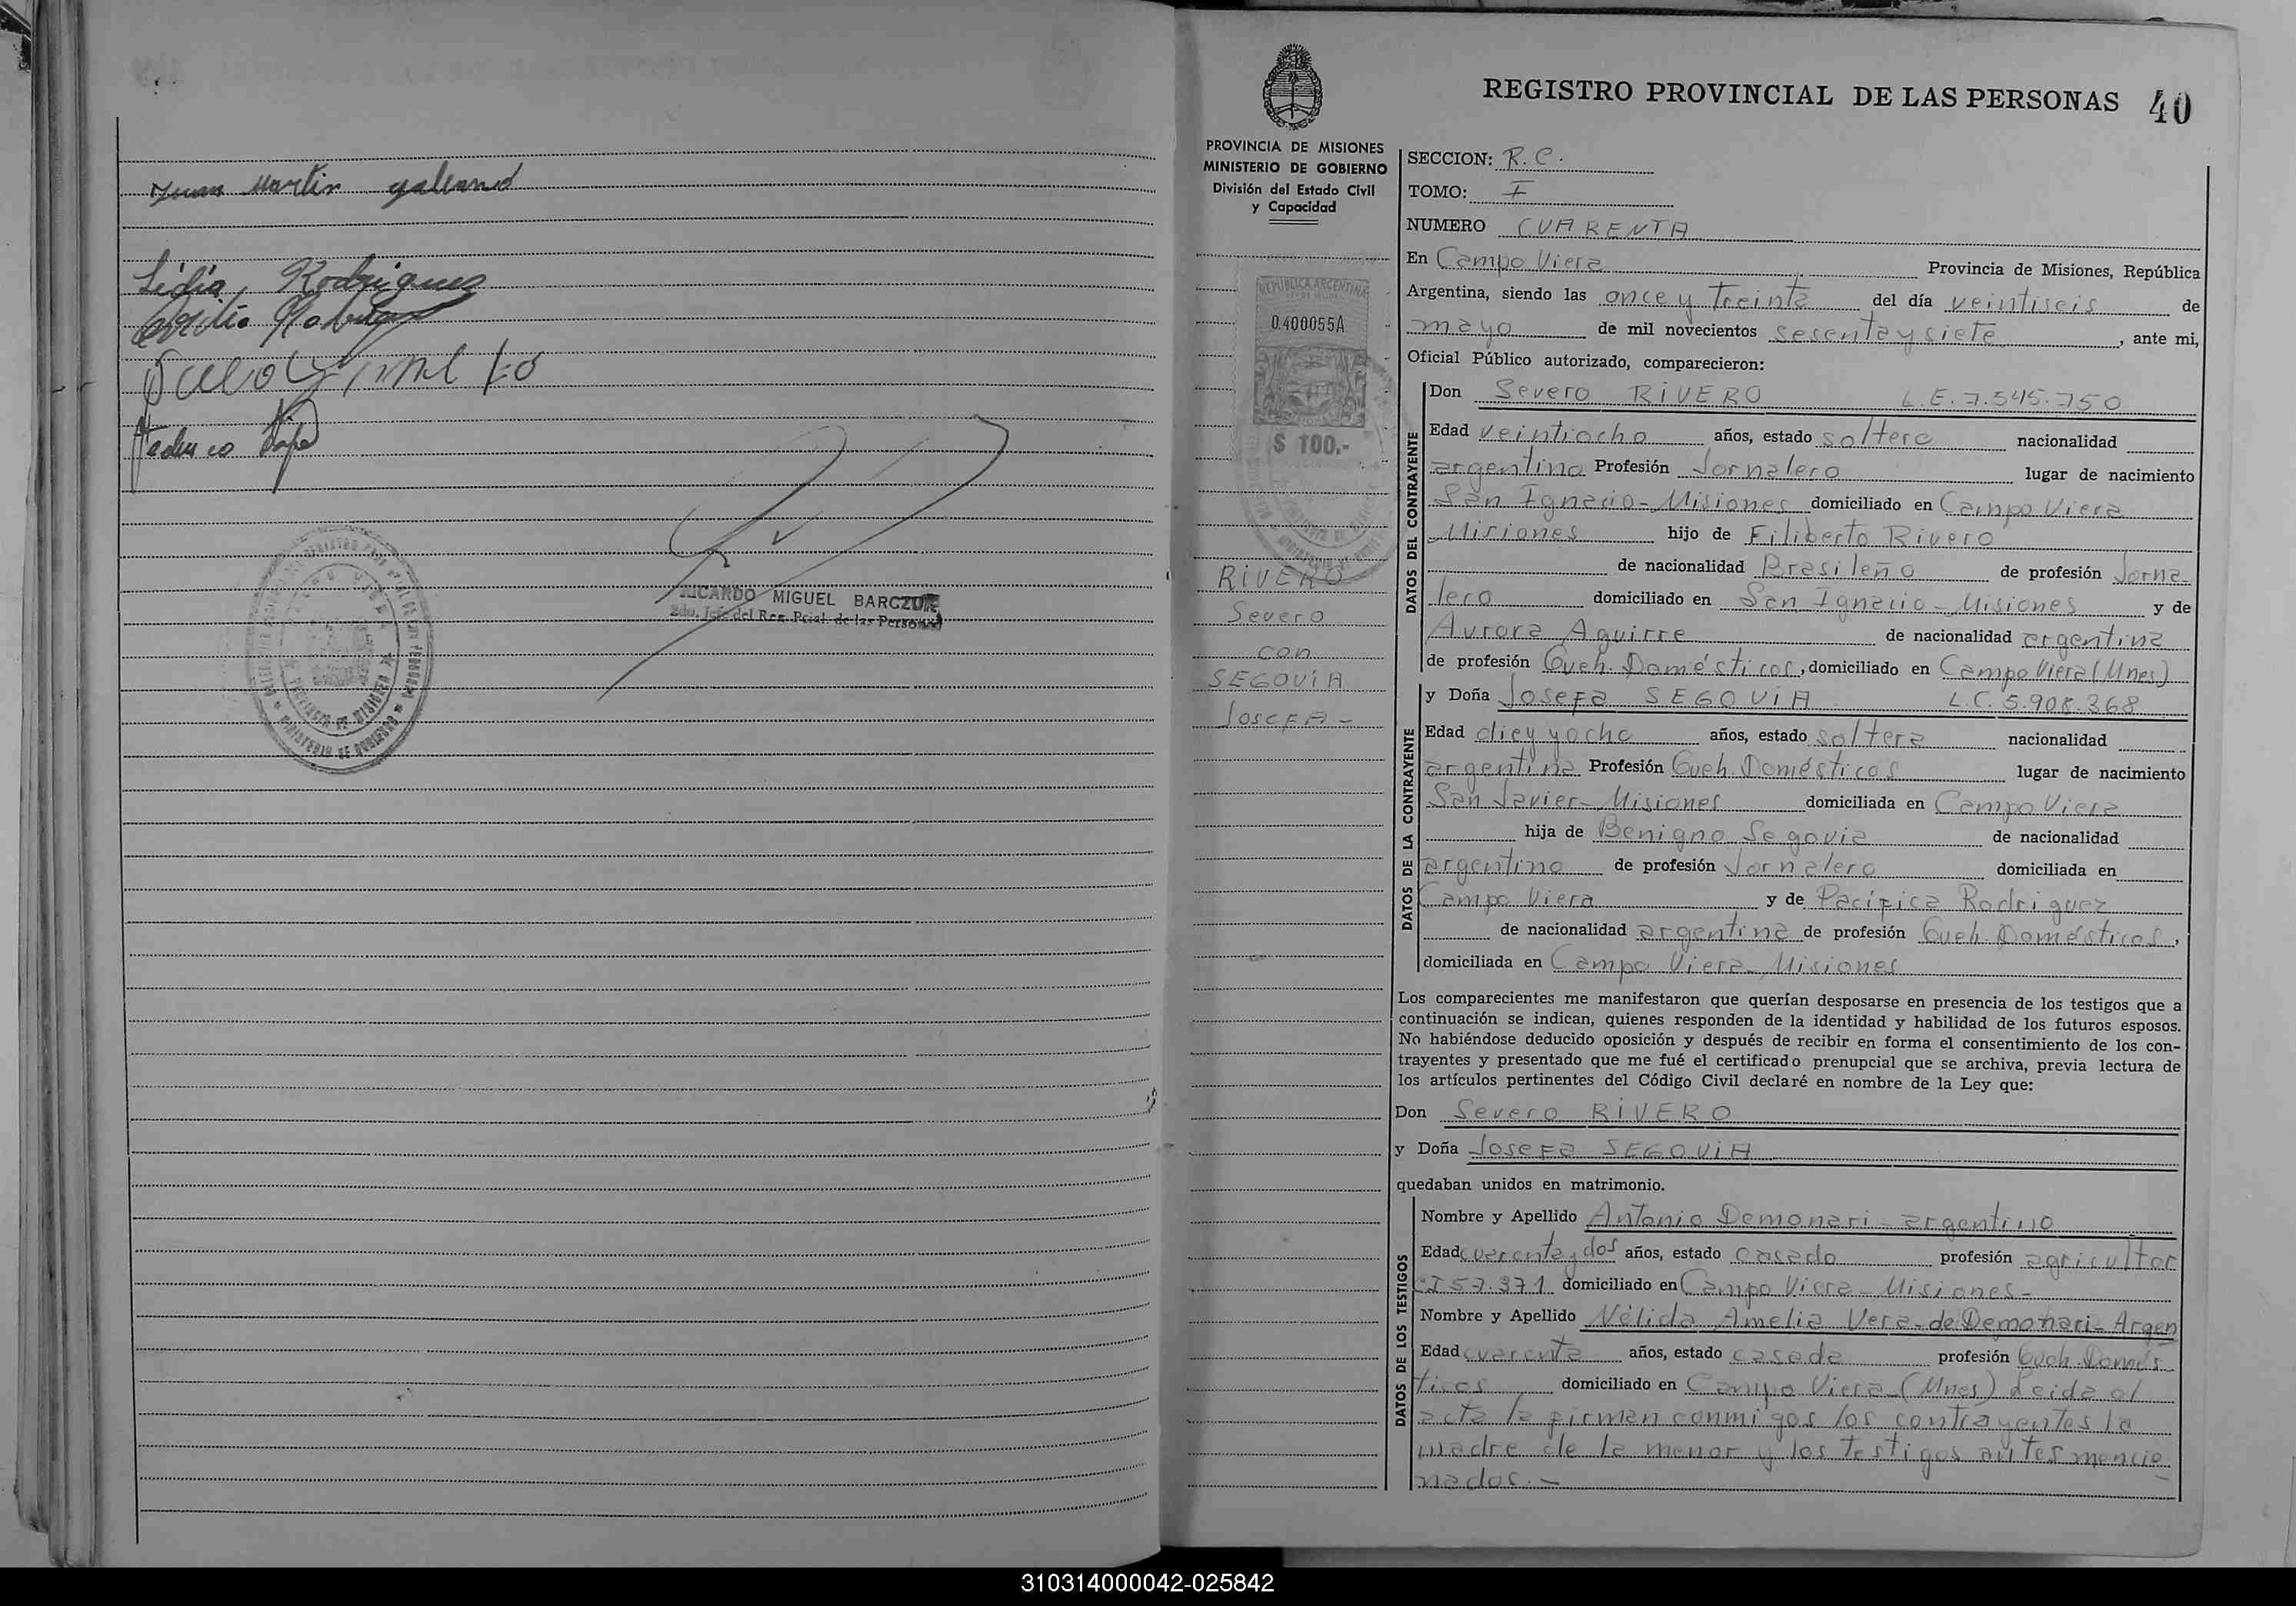 Juan Martin galeano
Lidia Rodrigues
Federico
RICARDO MIGUEL BARCZUK
2do. Jefe del Reg. Pcial. de las Personas
PROVINCIA DE MISIONES
MINISTERIO DE GOBIERNO
División del Estado Civil
y Capacidad
REPUBLICA ARGENTINA
0.400055A
$ 100.-
RIVERO
Severo
con
SEGOVIA
JOSEFA -
REGISTRO PROVINCIAL DE LAS PERSONAS 40
SECCION: R.C.
TOMO: I
NUMERO CUARENTA
En Campo Viera Provincia de Misiones, República
Argentina, siendo las once y treinta del día veintiseis de
mayo de mil novecientos sesenta y siete, ante mi,
Oficial Público autorizado, comparecieron:
DATOS DEL CONTRAYENTE
Don Severo RIVERO L.E. 7.545.750
Edad veintiocho años, estado soltero nacionalidad
argentino Profesión Jornalero lugar de nacimiento
San Ignacio - Misiones domiciliado en Campo Viera
Misiones hijo de Filiberto Rivero
de nacionalidad Brasileño de profesión Jorna-
lero domiciliado en San Ignacio - Misiones y de
Aurora Aguirre de nacionalidad argentina
de profesión Queh. Domésticos, domiciliado en Campo Viera (Mnes)
DATOS DE LA CONTRAYENTE
y Doña Josefa SEGOVIA L.C. 5.908.368
Edad diez y ocho años, estado soltera nacionalidad
argentina Profesión Queh. Domésticos lugar de nacimiento
San Javier - Misiones domiciliada en Campo Viera
hija de Benigno Segovia de nacionalidad
argentino de profesión Jornalero domiciliada en
Campo Viera y de Pacífica Rodriguez
de nacionalidad argentina de profesión Queh. Domésticos,
domiciliada en Campo Viera - Misiones
Los comparecientes me manifestaron que querían desposarse en presencia de los testigos que a
continuación se indican, quienes responden de la identidad y habilidad de los futuros esposos.
No habiéndose deducido oposición y después de recibir en forma el consentimiento de los con-
trayentes y presentado que me fué el certificado prenupcial que se archiva, previa lectura de
los artículos pertinentes del Código Civil declaré en nombre de la Ley que:
Don Severo RIVERO
y Doña Josefa SEGOVIA
quedaban unidos en matrimonio.
DATOS DE LOS TESTIGOS
Nombre y Apellido Antonio Demonari - argentino
Edad cuarenta y dos años, estado casado profesión agricultor
CI 57.371 domiciliado en Campo Viera - Misiones -
Nombre y Apellido Nélida Amelia Vera de Demonari - Argen
Edad cuarenta años, estado casada profesión Queh. Domés
ticos domiciliado en Campo Viera (Mnes) Leida el
acta la firman conmigos los contrayentes la
madre de la menor y los testigos antes mencio
nados. -
310314000042-025842